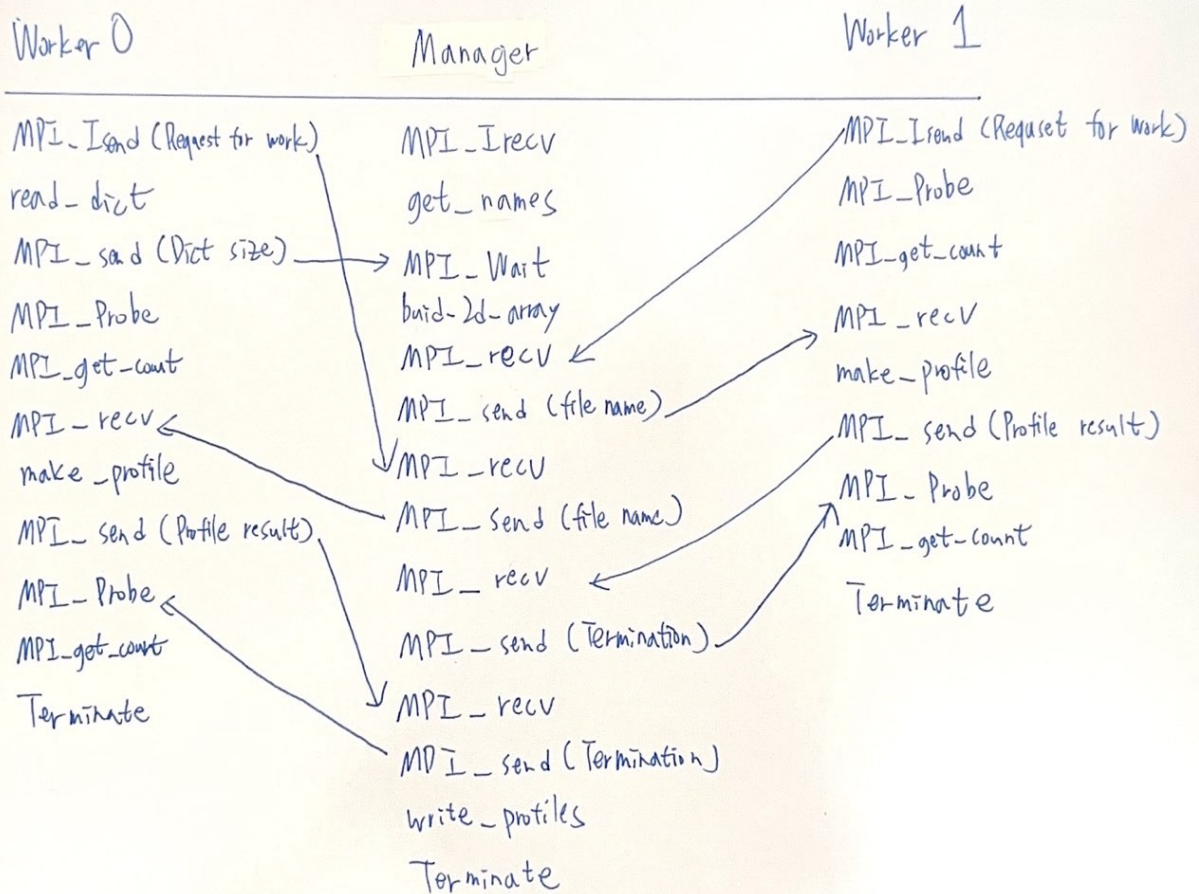 Worker 0
Manager
Worker 1
MPI_Isend (Request for work)
read_dict
MPI_send (Dict size)
MPI_Probe
MPI_get_count
MPI_recv
make_profile
MPI_send (Profile result)
MPI_Probe
MPI_get_count
Terminate
MPI_Irecv
get_names
MPI_Wait
buid_2d_array
MPI_recv
MPI_send (file name)
MPI_recv
MPI_send (file name)
MPI_recv
MPI_send (Termination)
MPI_recv
MPI_send (Termination)
write_profiles
Terminate
MPI_Isend (Requset for work)
MPI_Probe
MPI_get_count
MPI_recv
make_profile
MPI_send (Profile result)
MPI_Probe
MPI_get_count
Terminate